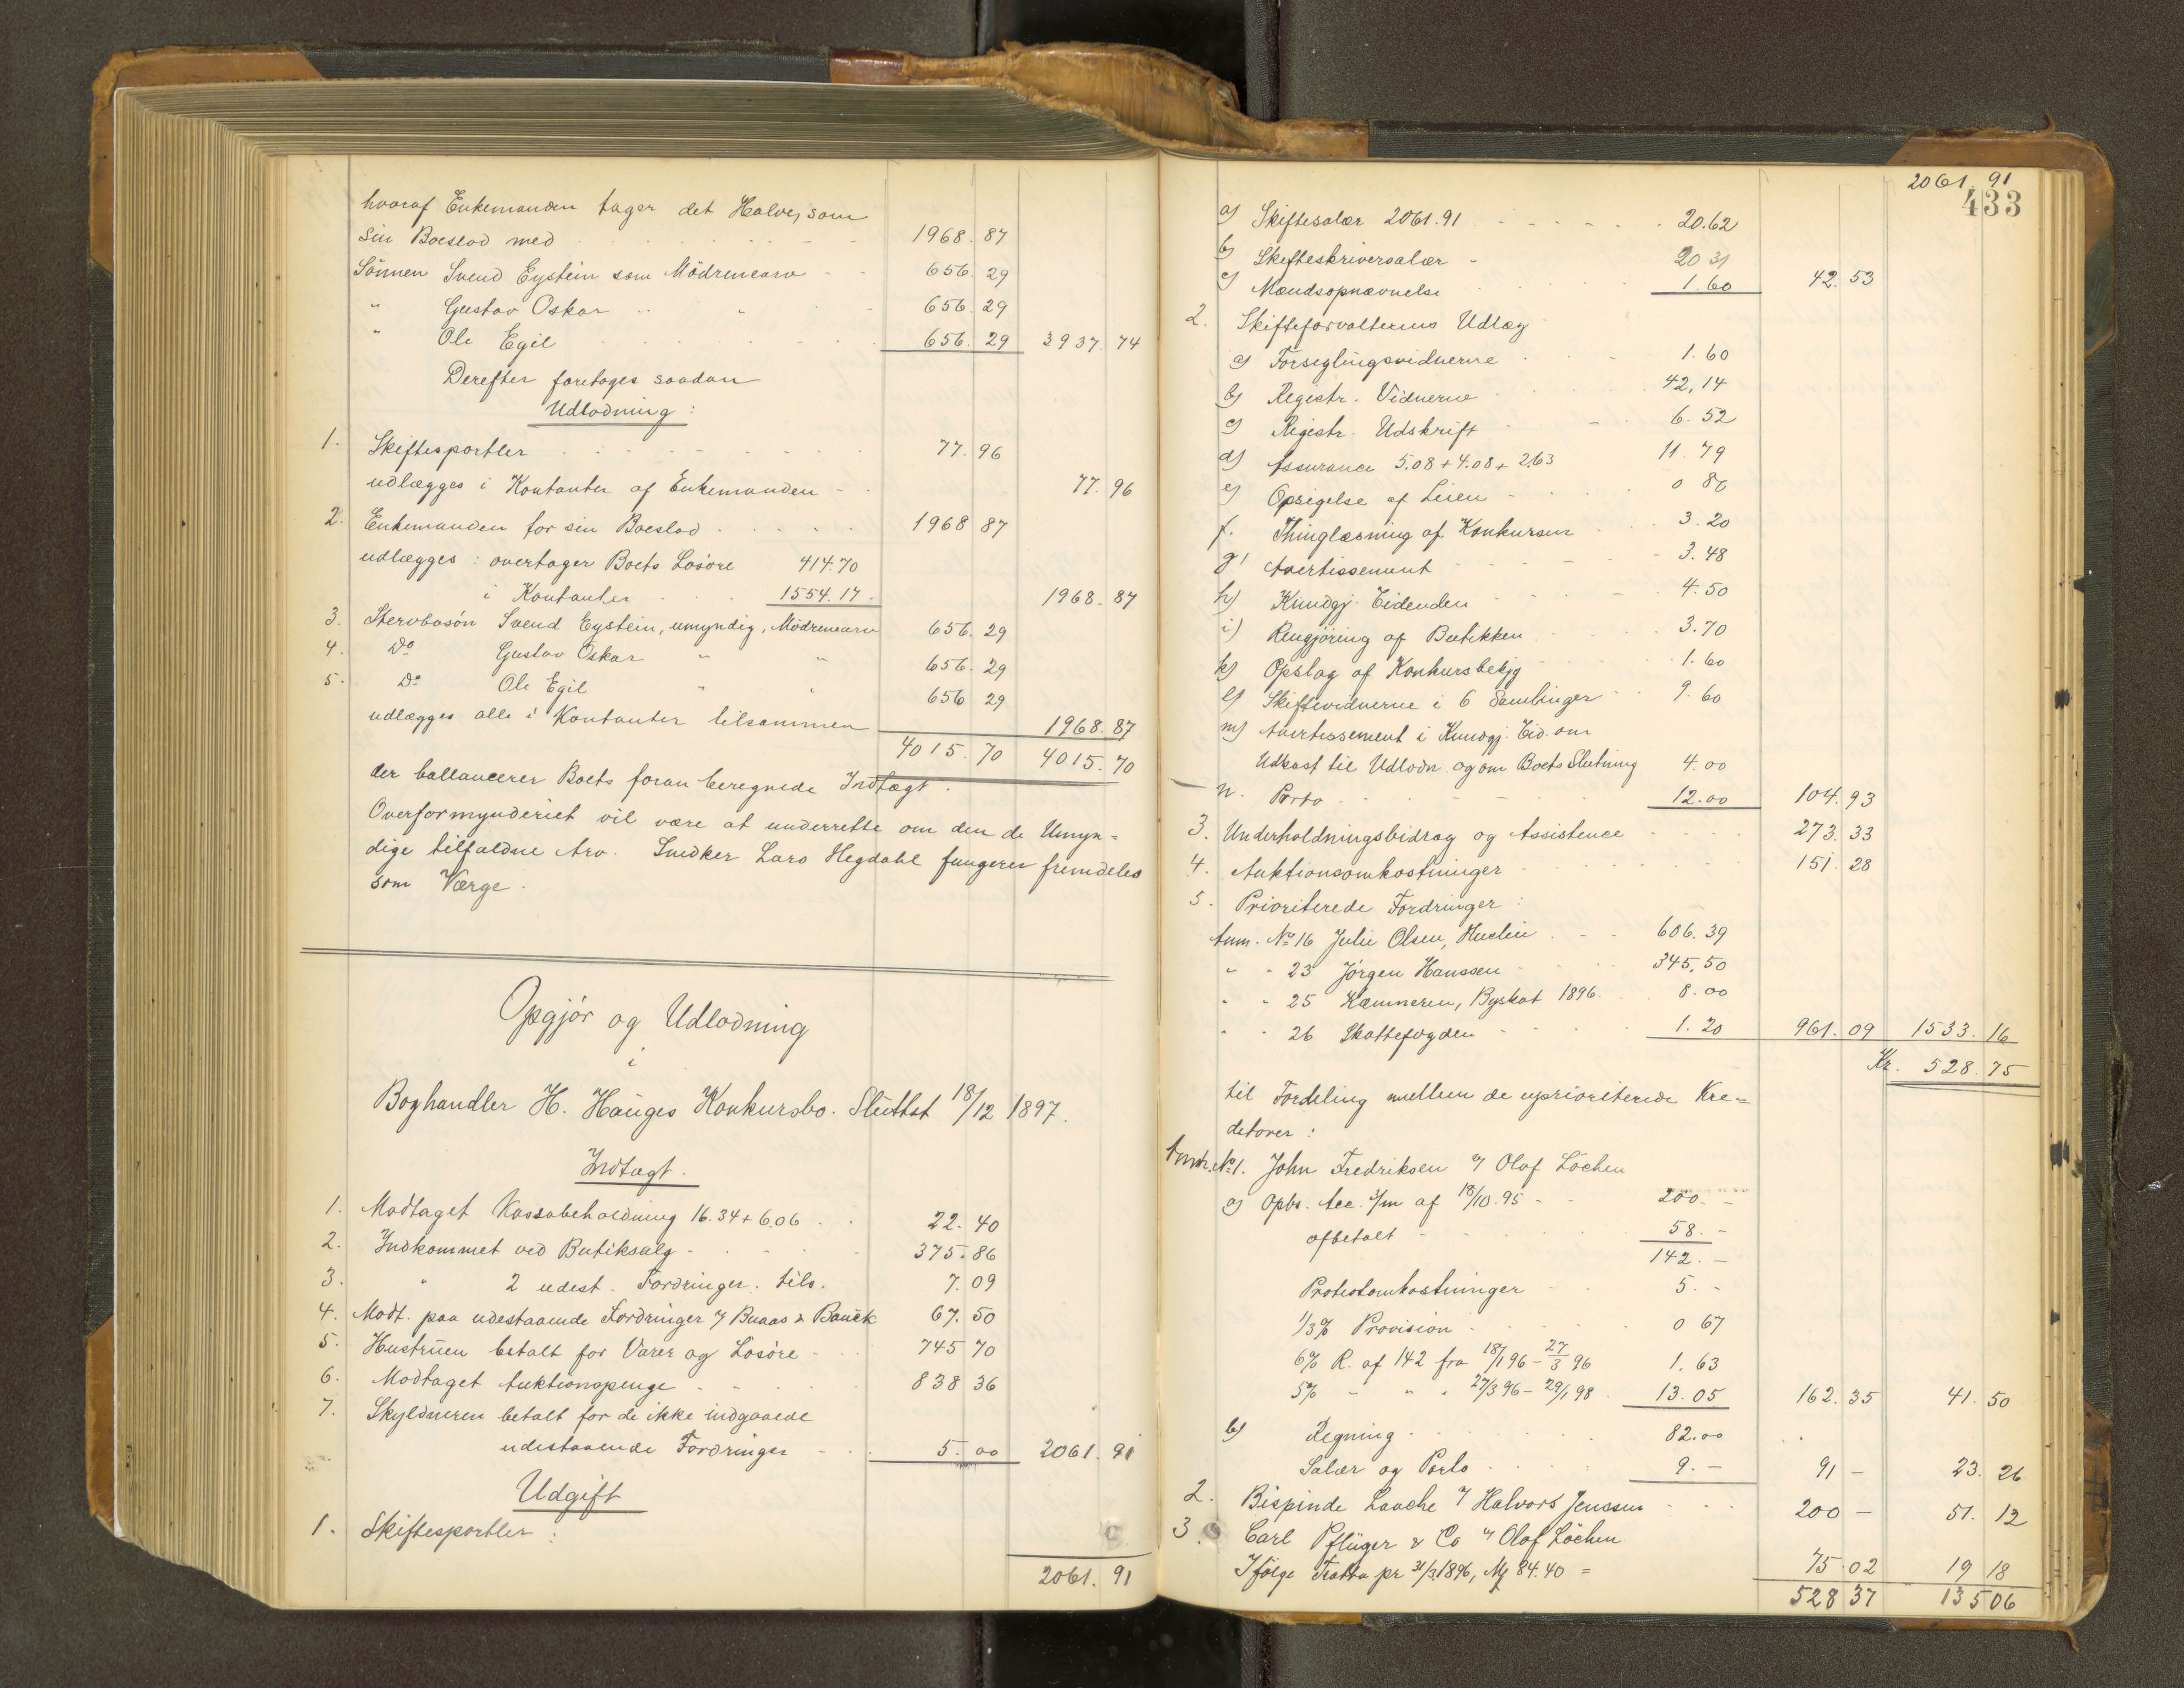 hvoraf Enkemanden tager det Halve, som
sin Boeslod med 1968. 87
Sönnen Svend Eystein som Mödrenearv 656. 29
" Gustav Oskar " 656. 29
" Ole Egil 656. 29 3937. 74
Derefter foretages saadan
Udlodning:
1. Skiftesportler 77. 96
udlægges i Kontanter af Enkemanden 77. 96
2. Enkemanden for sin Boeslod 1968 87
udlægges: overtager Boets Lösöre 414.70
i Kontanter 1554.17 1968. 87
3. Stervbosön Svend Eystein, umyndig, Mödrenearv 656. 29
4. Do Gustav Oskar " " 656. 29
5. Do Ole Egil " " 656 29
udlægges alle i Kontanter tilsammen 1968. 87
4015. 70 4015. 70
der ballancerer Boets foran beregnede Indtægt.
Overformynderiet vil være at underrette om den de Umyn=
dige tilfaldne Arv. Snedker Lars Hegdahl fungerer fremdeles
som Værge.
Opgjör og Udlodning
i
Boghandler H. Hauges Konkursbo. Sluttet 18/12 1897.
Indtægt.
1. Modtaget Kassabeholdning 16.34 + 6.06 22. 40
2. Indkommet ved Butiksalg 375. 86
3. " 2 udest. Fordringer. tils. 7. 09
4. Modt. paa udestaaende Fordringer v/ Buaas & Bauck 67. 50
5. Hustruen betalt for Varer og Lösöre 745 70
6. Modtaget Auktionspenge 838 36
7. Skyldneren betalt for de ikke indgaaede
udestaaende Fordringer 5. 00 2061. 91
Udgift
1. Skiftesportler:
2061. 91
2061. 91
433
a) Skiftesalær 2061.91 20.62
b) Skifteskriversalær 20 31
c) Mændsopnævnelse 1.60 42. 53
2. Skifteforvalterens Udlæg
a) Forseglingsvidnerne 1. 60
b) Registr. Vidnerne 42, 14
c) Registr. Udskrift 6. 52
d) Assurance 5.08 + 4.08 + 2.63 11. 79
e) Opsigelse af Leien 0 80
f. Thinglæsning af Konkursen 3. 20
g) Avertissement 3. 48
h) Kundgj. Tidenden 4. 50
i) Rengjöring af Butikken 3. 70
k) Opslag af Konkursbekjg 1. 60
l) Skiftevidnerne i 6 Samlinger 9. 60
m) Avertissement i Kundgj. Tid. om
Udkast til Udlodn. og om Boets Slutning 4. 00
n. Porto 12.00 104. 93
3. Underholdningsbidrag og Assistence 273. 33
4. Auktionsomkostninger 151. 28
5. Prioriterede Fordringer:
Anm. No 16 Julie Olsen, Husleie 606. 39
" " 23 Jörgen Hanssen 345. 50
" " 25 Kæmneren, Byskat 1896 8. 00
" " 26 Skattefogden 1. 20 961. 09 1533. 16
Kr. 528. 75
til Fordeling mellem de uprioriterede Kre=
ditorer:
Anm. No 1. John Fredriksen v/ Olaf Löchen
a) Opbr. Acc. 3/m af 18/10.95 200. -
afbetalt 58. -
142. -
Protestomkostninger 5. -
1/3% Provision 0 67
6% R. af 142 fra 18/1 96 - 27/3 96 1. 63
5% " " " 27/3 96 - 29/1 98 13. 05 162. 35 41. 50
b) Regning 82.00
Salær og Porto 9. - 91 - 23. 26
2. Bispinde Laache v/ Halvors Jenssen 200 - 51. 12
3. Carl Pflüger & Co v/ Olaf Löchen
Ifölge Tratta pr 31/3.1896, M 84.40 = 75.02 19 18
528 37 135 06